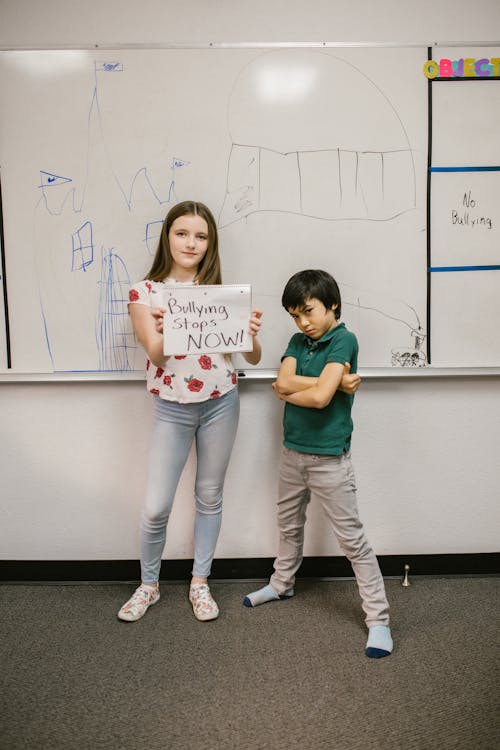 OBJECT
No
Bullying
Bullying
Stops
NOW!